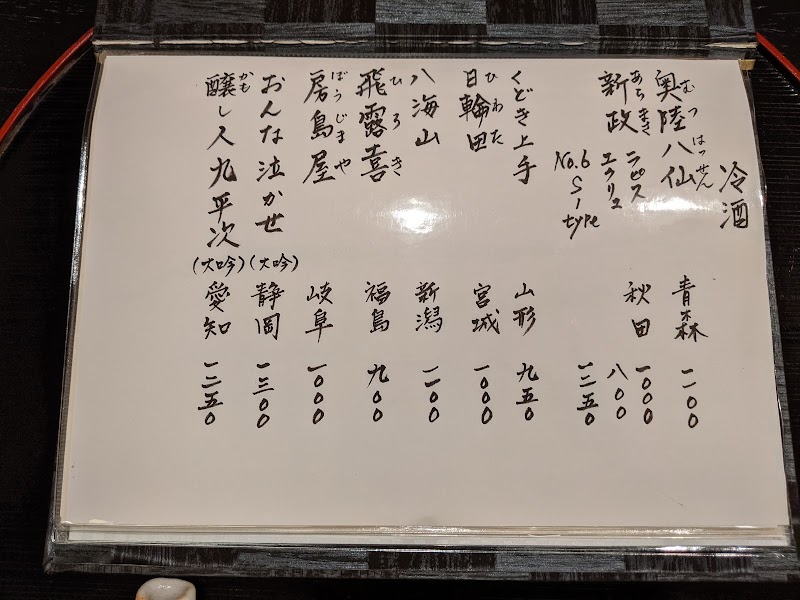 冷酒
むつ はっせん
奥陸八仙 青森 一一〇〇
あらまさ
新政 ラピス 秋田 一〇〇〇
エクリュ 八〇〇
No.6 S-type 一二五〇
くどき上手 山形 九五〇
ひわた
日輪田 宮城 一〇〇〇
八海山 新潟 一一〇〇
ひろき
飛露喜 福島 九〇〇
ぼうじまや
房島屋 岐阜 一〇〇〇
おんな泣かせ(大吟) 静岡 一三〇〇
かも
醸し人九平次(大吟) 愛知 一二五〇